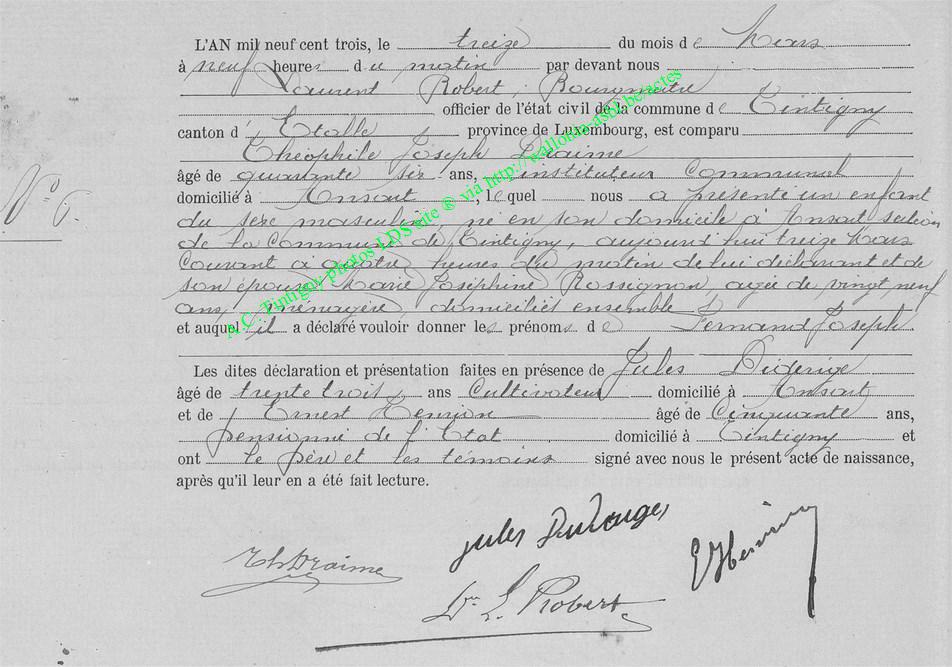 L'AN mil neuf cent trois, le treize du mois de Mars
à neuf heures du matin par devant nous
Laurent Robert, Bourgmestre
officier de l'état civil de la commune de Tintigny
canton d' Etalle province de Luxembourg, est comparu
Théophile Joseph Draime
âgé de quarante six ans, instituteur Communal
domicilié à Ansart, lequel nous a présenté un enfant
N° 6.
du sexe masculin, né en son domicile à Ansart section
de la Commune de Tintigny, aujourd'hui treize Mars
Courant à quatre heures du matin de lui déclarant et de
son épouse Marie Joséphine Rossignon, agée de vingt neuf
ans, ménagère, domiciliés ensemble
et auquel il a déclaré vouloir donner les prénoms de Fernand Joseph
Les dites déclaration et présentation faites en présence de Jules
âgé de trente trois ans Cultivateur domicilié à Ansart
et de Ernest Henrion âgé de Cinquante ans,
pensionné de l'Etat domicilié à Tintigny et
ont le père et les témoins signé avec nous le présent acte de naissance,
après qu'il leur en a été fait lecture.
Jules
Th Draime
E Henrion
Dr L. Robert
A.C. Tintigny photos LDS site ® via http://wallonia-asbl.be/actes